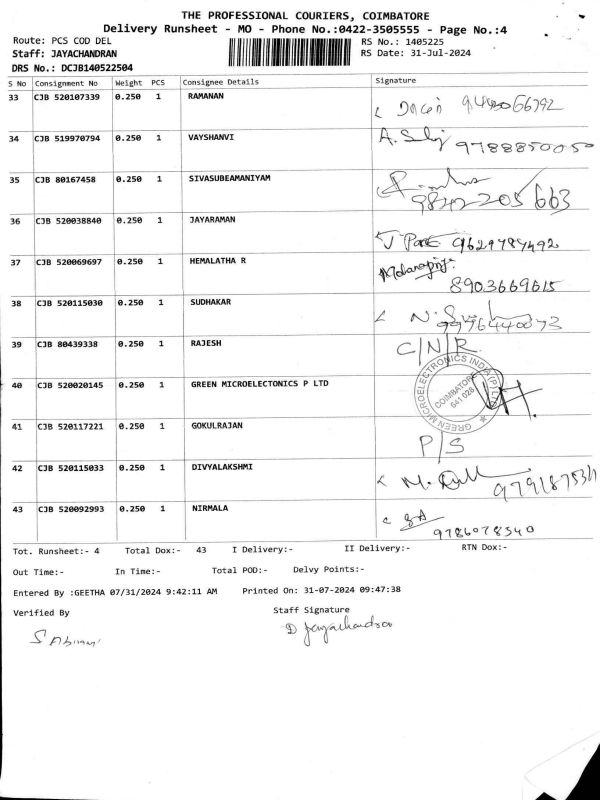 THE PROFESSIONAL COURIERS, COIMBATORE
Delivery Runsheet - MO - Phone No.:0422-3505555 - Page No.:4
Route: PCS COD DEL RS No.: 1405225
Staff: JAYACHANDRAN RS Date: 31-Jul-2024
DRS No.: DCJB140522504
S No Consignment No Weight PCS Consignee Details Signature
33 CJB 520107339 0.250 1 RAMANAN
34 CJB 519970794 0.250 1 VAYSHANVI 9788850050
35 CJB 80167458 0.250 1 SIVASUBEAMANIYAM 9842205663
36 CJB 520038840 0.250 1 JAYARAMAN 9629784492
37 CJB 520069697 0.250 1 HEMALATHA R 8903669615
38 CJB 520115030 0.250 1 SUDHAKAR 9976440073
39 CJB 80439338 0.250 1 RAJESH C/N/R
40 CJB 520020145 0.250 1 GREEN MICROELECTONICS P LTD
GREEN MICROELECTRONICS INDIA (P) LTD
COIMBATORE
641 028
41 CJB 520117221 0.250 1 GOKULRAJAN P/S
42 CJB 520115033 0.250 1 DIVYALAKSHMI
43 CJB 520092993 0.250 1 NIRMALA 9786078540
Tot. Runsheet:- 4 Total Dox:- 43 I Delivery:- II Delivery:- RTN Dox:-
Out Time:- In Time:- Total POD:- Delvy Points:-
Entered By :GEETHA 07/31/2024 9:42:11 AM Printed On: 31-07-2024 09:47:38
Verified By Staff Signature
D Jayachandran